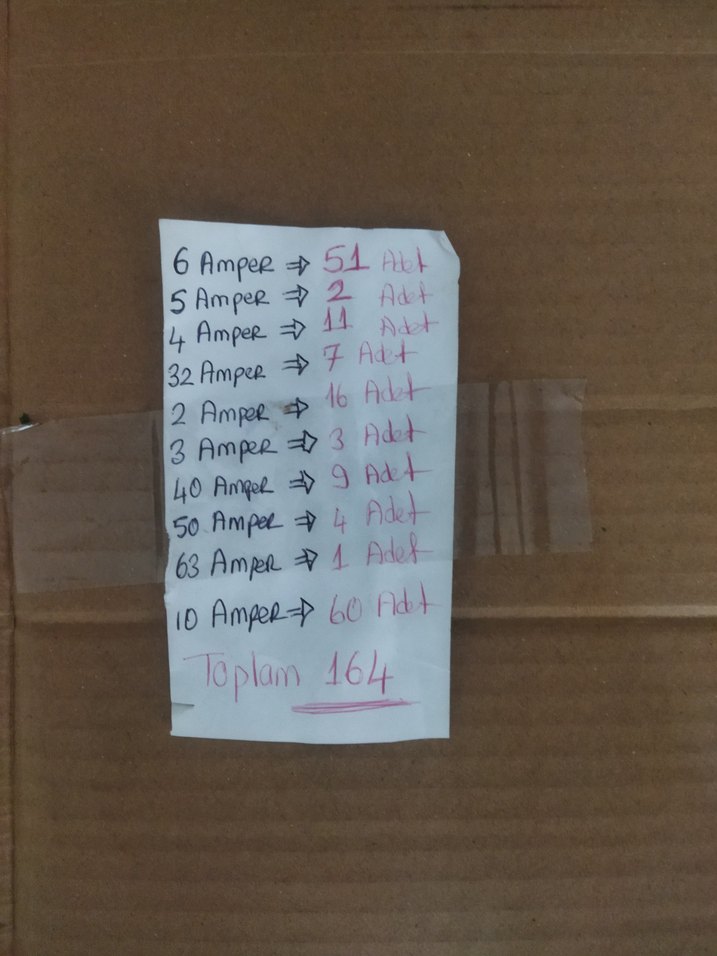 6 Amper ⇒ 51 Adet
5 Amper ⇒ 2 Adet
4 Amper ⇒ 11 Adet
32 Amper ⇒ 7 Adet
2 Amper ⇒ 16 Adet
3 Amper ⇒ 3 Adet
40 Amper ⇒ 9 Adet
50 Amper ⇒ 4 Adet
63 Amper ⇒ 1 Adet
10 Amper ⇒ 60 Adet
Toplam 164